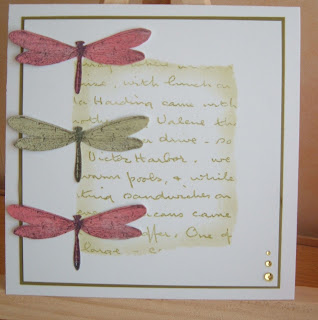 with lunch on
Harding came with
Valerie the
drive - so
Victor Harbor. we
warm pools, & while
sandwiches on
came
One of
large -